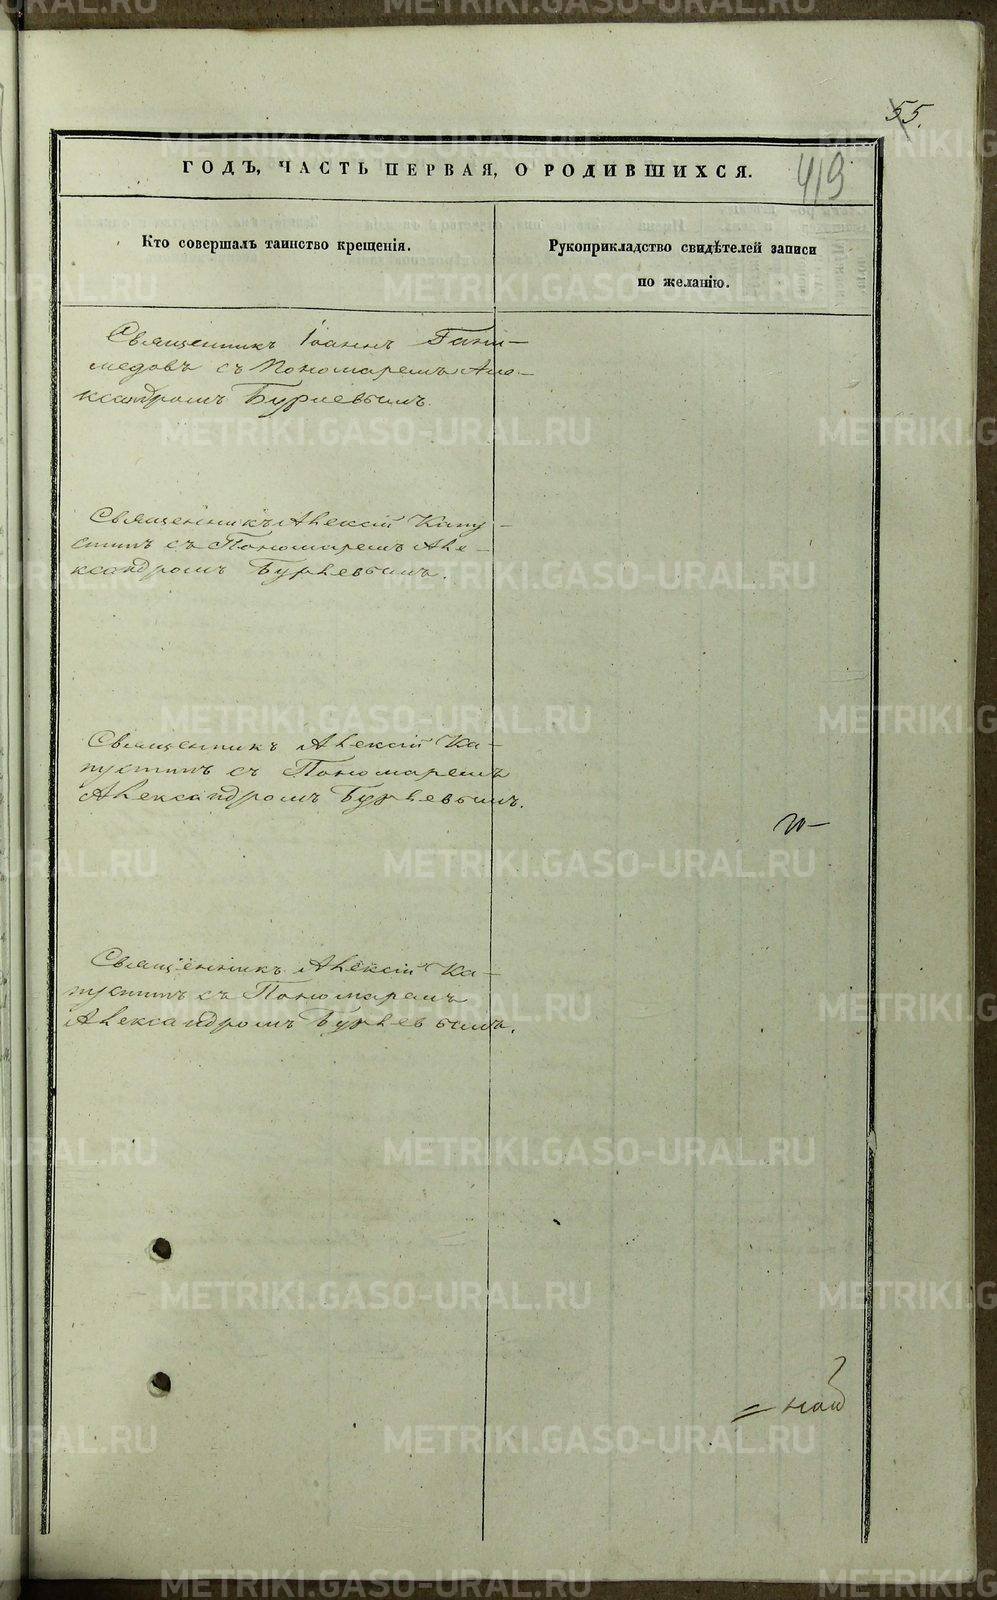 55.
419
ГОДЪ, ЧАСТЬ ПЕРВАЯ, О РОДИВШИХСЯ.
Кто совершалъ таинство крещенія.
Рукоприкладство свидѣтелей записи
по желанію.
Священникъ Іоаннъ Гани-
медовъ съ Пономаремъ Але-
ксандромъ Бурлевымъ.
Священникъ Алексій Капу-
стинъ съ Пономаремъ Але-
ксандромъ Бурлевымъ.
Священникъ Алексій Ка-
пустинъ съ Пономаремъ
Александромъ Бурлевымъ.
Священникъ Алексій Ка-
пустинъ съ Пономаремъ
Александромъ Бурлевымъ.
METRIKI.GASO-URAL.RU